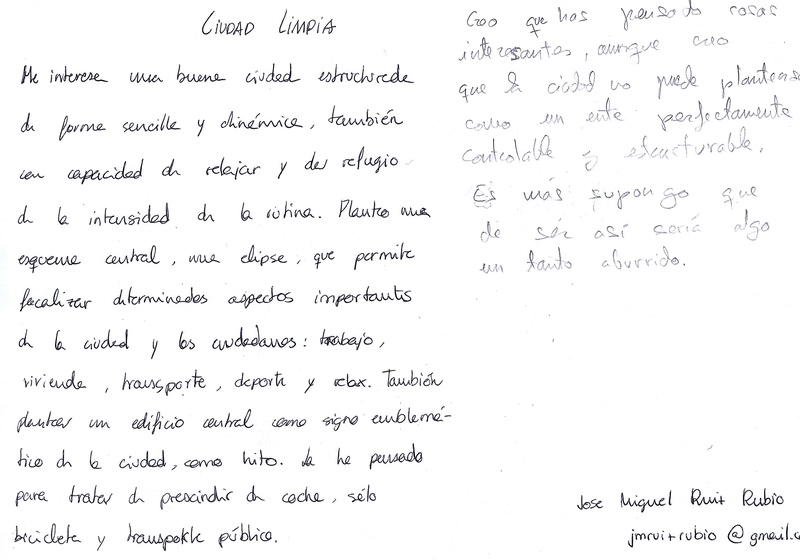 CIUDAD LIMPIA
Me interesa una buena ciudad estructurada
de forma sencilla y dinámica, también
con capacidad de relajar y dar refugio
de la intensidad de la rutina. Planteo una
esquema central, una elipse, que permite
focalizar determinados aspectos importantes
de la ciudad y los ciudadanos: trabajo,
vivienda, transporte, deporte y relax. También
plantear un edificio central como signo emblemá-
tico de la ciudad, como hito. La he pensado
para tratar de prescindir de coche, sólo
bicicleta y transporte público.
Creo que has pensado cosas
interesantes, aunque creo
que la ciudad no puede plantearse
como un ente perfectamente
controlable y estructurable.
Es más supongo que
de ser así sería algo
un tanto aburrido.
Jose Miguel Ruiz Rubio
jmruitrubio @ gmail.c